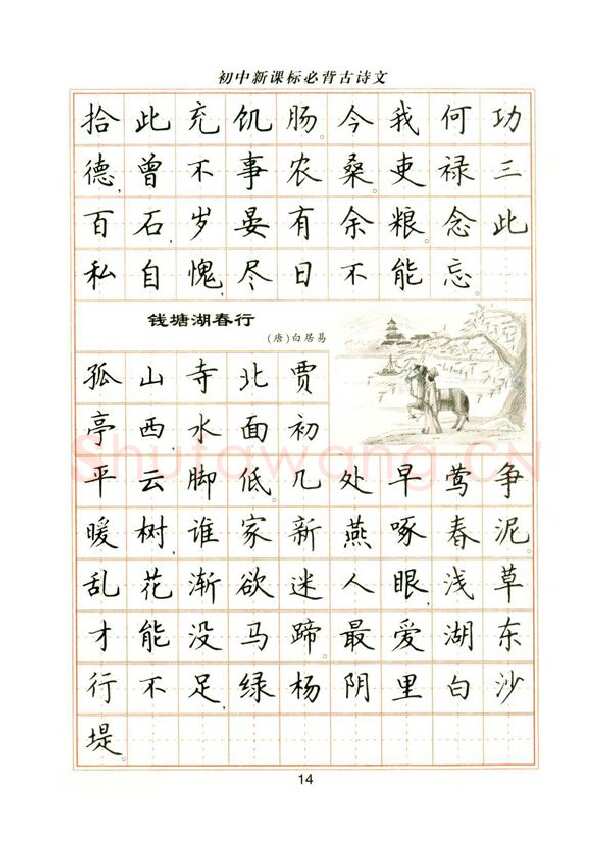 初中新课标必背古诗文
拾此充饥肠。今我何功
德，曾不事农桑。吏禄三
百石，岁晏有余粮。念此
私自愧，尽日不能忘。
钱塘湖春行
(唐)白居易
孤山寺北贾
亭西，水面初
平云脚低。几处早莺争
暖树，谁家新燕啄春泥。
乱花渐欲迷人眼，浅草
才能没马蹄。最爱湖东
行不足，绿杨阴里白沙
堤。
Shufawang.CN
14